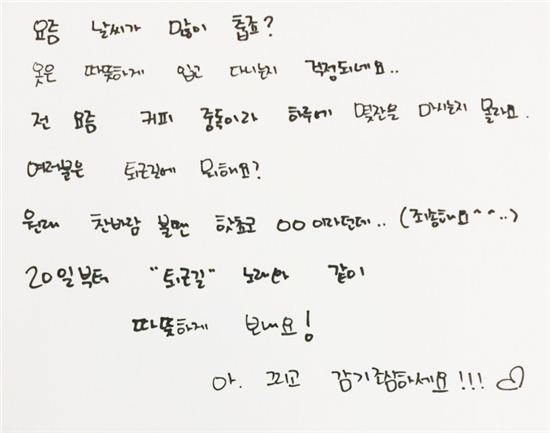 요즘 날씨가 많이 춥죠?
옷은 따뜻하게 입고 다니는지 걱정되네요..
전 요즘 커피 중독이라 하루에 몇잔을 마시는지 몰라요.
여러분은 퇴근길에 뭐해요?
원래 찬바람 불면 핫초코 00이라던데.. (죄송해요^^..)
20일부터 "퇴근길" 노래와 같이
따뜻하게 보내요!
아. 끄리고 감기조심하세요!!! ♡